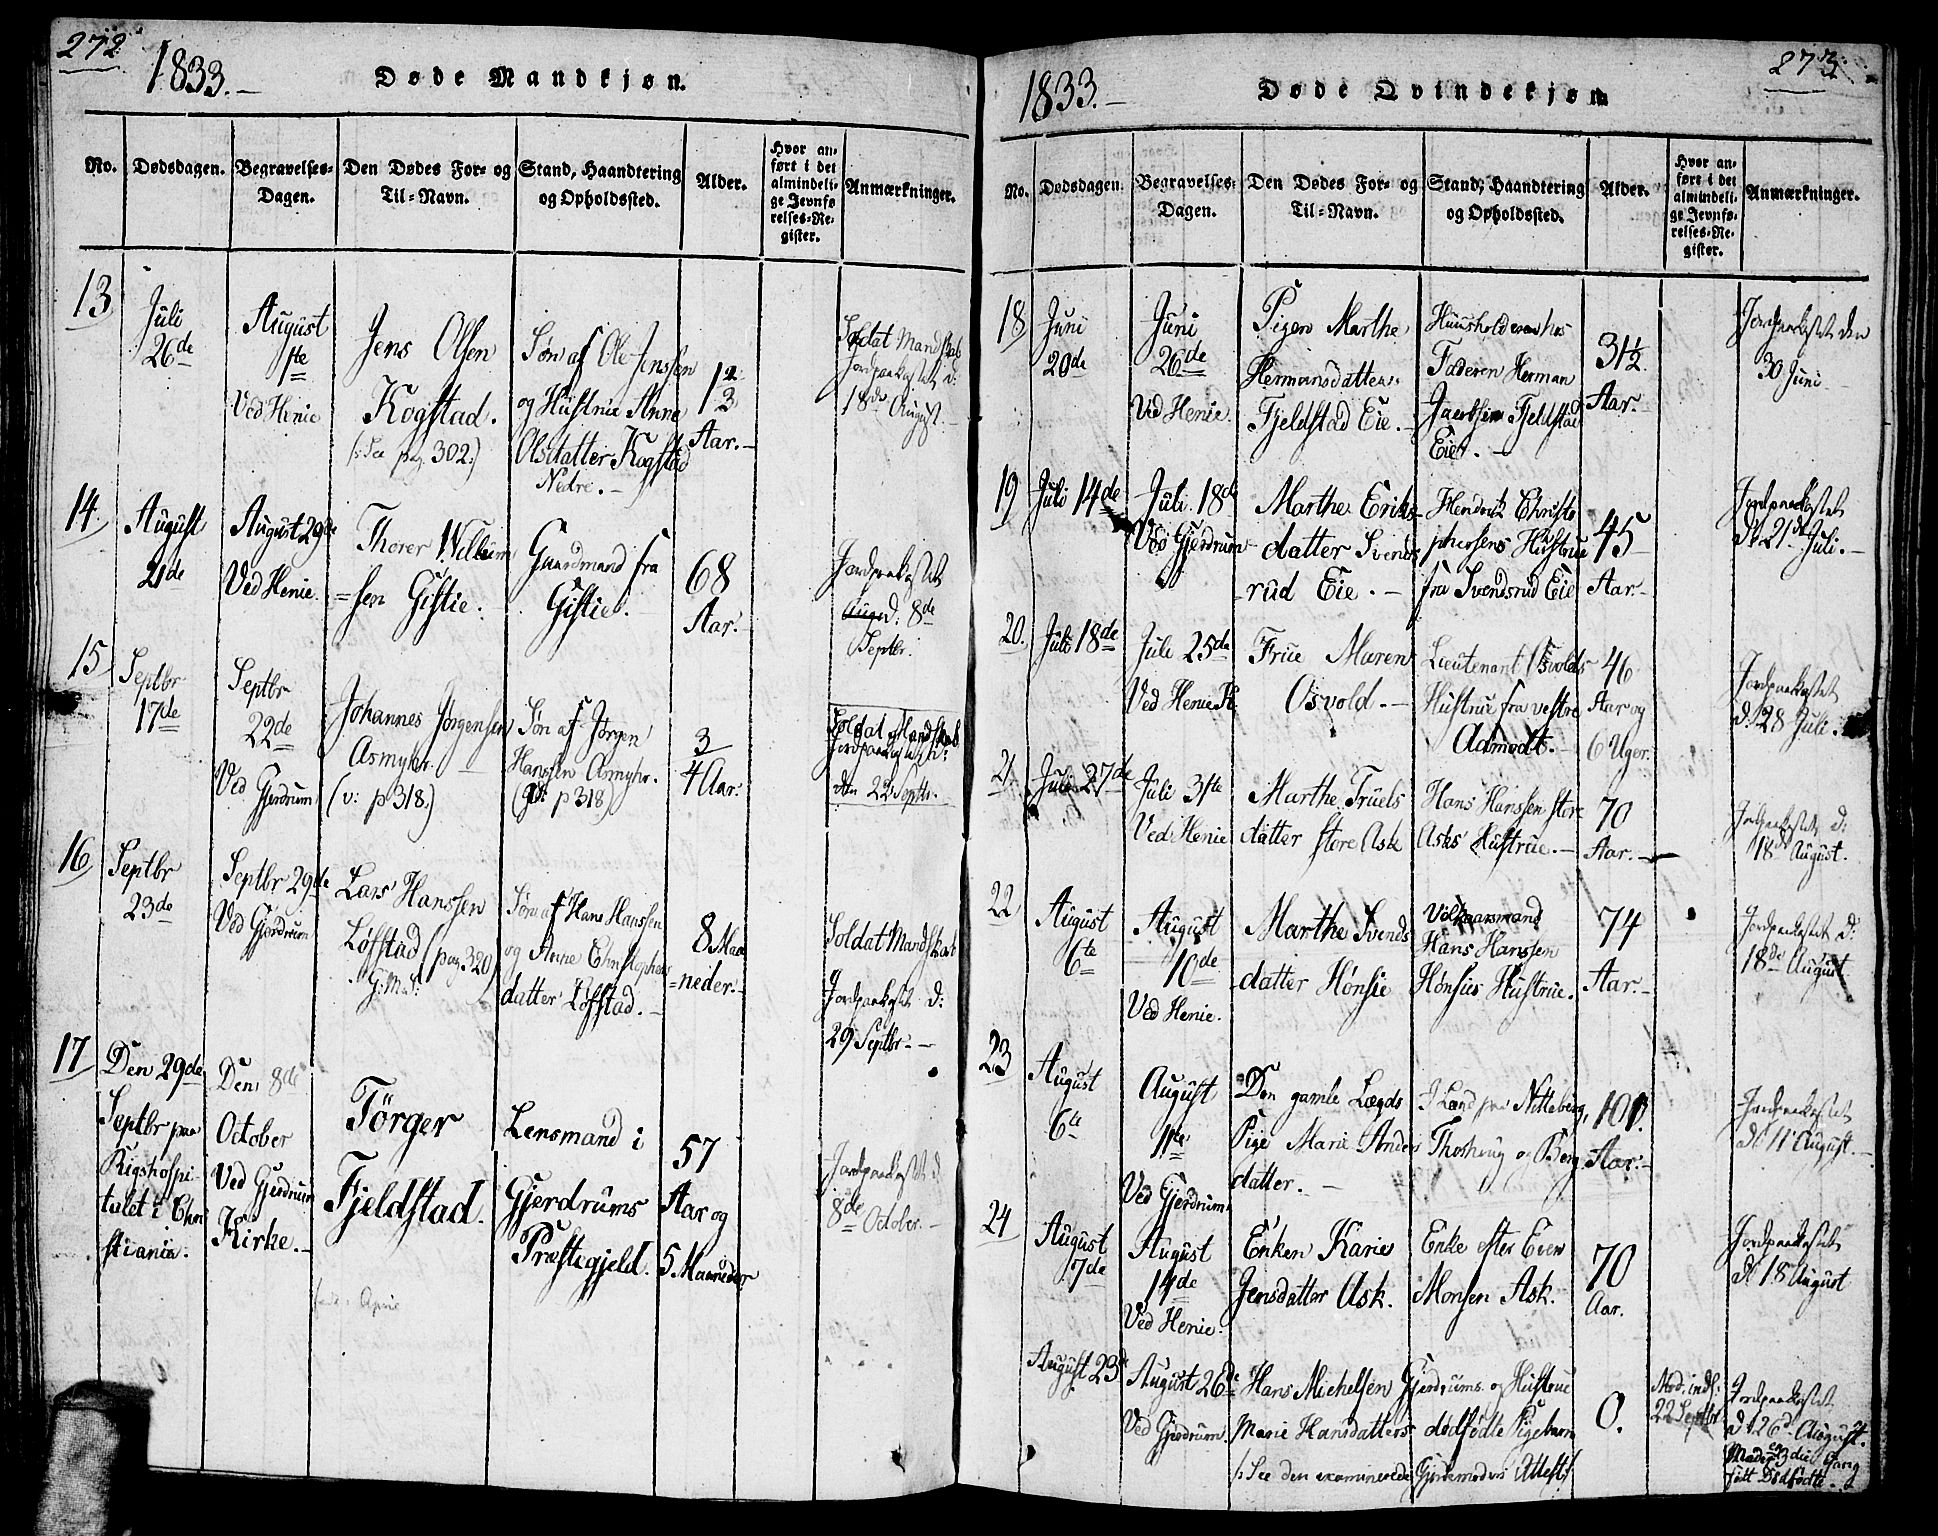 272.
1833.
Døde Mandkjøn.
No.
Dødsdagen.
Begravelses-
Dagen.
Den Dødes For- og
Til-Navn.
Stand, Haandtering
og Opholdssted.
Alder.
Hvor an-
ført i det
almindeli-
ge Jevnfø
relses-Re-
gister.
Anmærkninger.
13
Juli
26de
August
1te
Ved Henie
Jens Olsen
Kogstad.
(: See pag. 302:)
Søn af Ole Jenssen
og Hustrue Anne
Olsdatter Kogstad
Nedre.
Aar.
Soldat Mandskab
Jordpaakastet d:
18de August.
14
August
21de
August 29de
Ved Henie.
Thorer Willum
=sen Gistie.
Gaardmand fra
Gistie.
68
Aar.
Jordpaakastet
d: 8de
Septbr.
15
Septbr
17de
Septbr
22de
Ved Gjerdrum
Johannes Jørgensen
Asmyhr.
(v: p 318.)
Søn af Jørgen
Hanssen Asmyhr.
p 318.)
3/4 Aar.
Soldat Mandskab
Jordpaakastet
den 22 Septbr.
16
Septbr
23de
Septbr 29de
Ved Gjerdrum
Lars Hanssen
Løfstad (pag. 320)
Søn af Hans Hanssen
og Anne Christophers
datter Løfstad.
8 Maa
=neder.
Soldat Mandskab
Jordpaakastet d:
29 Septbr.
17
Den 29de
Septbr paa
Rigshospi-
talet i Chri
stiania.
Den 8de
October
Ved Gjerdrum
Kirke.
Törger
Fjeldstad.
Lensmand i
Gjerdrums
Præstegjeld.
57
Aar og
5 Maaneder
Jordpaakastet d
8de October.
273.
1833.
Døde Qvindekjøn
No.
Dødsdagen.
Begravelses-
Dagen.
Den Dødes For- og
Til-Navn.
Stand, Haandtering
og Opholdssted.
Alder.
Hvor an-
ført i det
almindeli-
ge Jevnfø-
relses-Re-
gister.
Anmærkninger.
18
Juni
20de
Juni
26de
Ved Henie.
Pigen Marthe
Hermansdatter
Fjeldstad Eie.
Huusholderen hos
Faderen Herman
Jacobsen Fjeldstad
Eie.
31½
Aar.
Jordpaakastet den
30 Juni
19
Juli 14de
Juli 18de
Ved Gjerdrum
Marthe Eriks
datter Svends
-rud Eie.
Hendrik Christo
phersens Hustrue
fra Svendsrud Eie
45
Aar.
Jordpaakastet
d 21de Juli.
20.
Juli 18de
Jule 25de
Ved Henie K.
Frue Maren
Osvold.
Lieutenant Osvolds
Hustrue fra vestre
Aamodt.
46
Aar og
6 Uger.
Jordpaakastet
d: 28 Juli.
21
Juli 27de
Juli 31te
Ved Henie
Marthe Truels
datter Store Ask
Hans Hanssen Store
Asks Hustrue.
70
Aar.
Jordpaakastet d:
18de August.
22
August
6te
August
10de
Ved Henie.
Marthe Svends
datter Hønsie
Vilkaarsmand
Hans Hanssen
Hønsies Hustrue.
74
Aar.
Jordpaakastet d:
18de August
23
August
6te
August
11te
Ved Gjerdrum
Den gamle Lægds
Pige Marie Anders
datter.
I Lægd paa Nitteberg,
og Berg.
101.
Aar.
Jordpaakastet
d 11 August.
24
August
7de
August
14de
Ved Henie.
Enken Karie
Jensdatter Ask.
Enke efter Even
Monsen Ask.
70
Aar.
Jordpaakastet
d 18 August
August 23de
August 26de
Ved Gjerdrum.
Hans Michelsen Gjerdrums og Hustrue
Marie Hansdatters dødfødte Pigebarn
(: See den examinerede Gjordemoders Attest:)
0.
Mod. indl:
22 Septbr.
Jordpaakastet
d 26de August.
Moder 3die Gang
født Dødfødte.